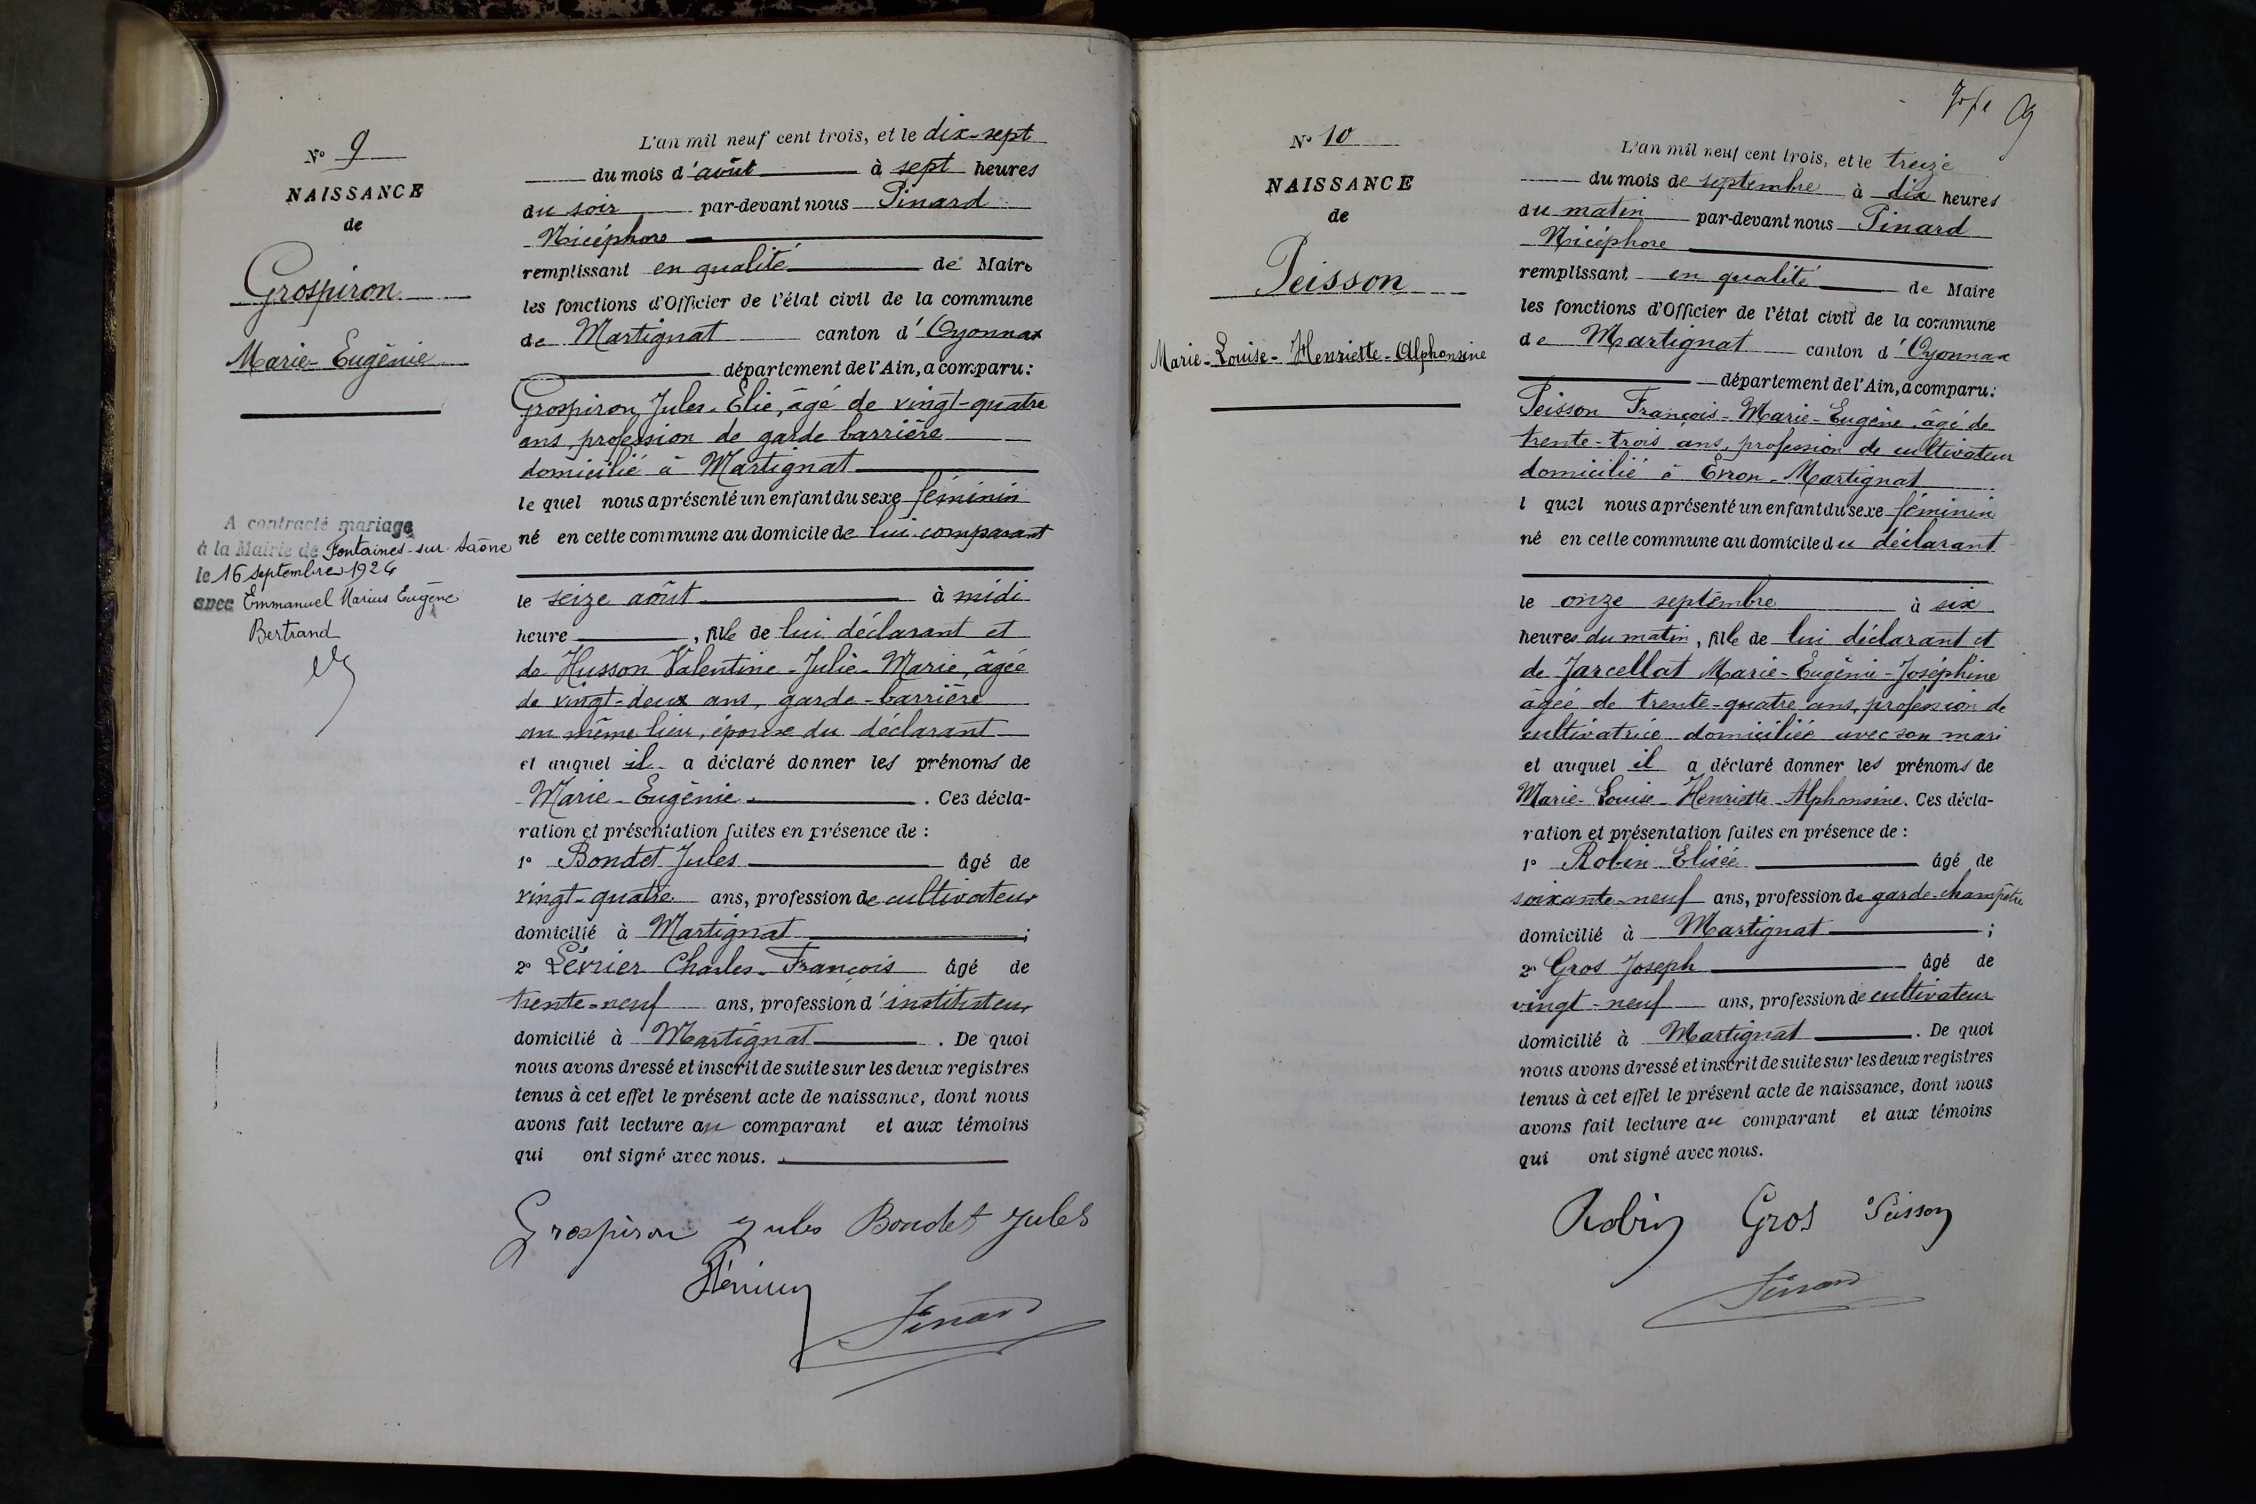 N° 9
NAISSANCE
de
Grospiron
Marie-Eugénie
A contracté mariage
à la Mairie de Fontaines-sur-Saône
le 16 septembre 1924
avec Emmanuel Marius Eugène
Bertrand
L'an mil neuf cent trois, et le dix-sept
du mois d'août à sept heures
du soir par-devant nous Pinard
Nicéphore
remplissant en qualité de Maire
les fonctions d'Officier de l'état civil de la commune
de Martignat canton d'Oyonnax
département de l'Ain, a comparu:
Grospiron Jules-Elie, âgé de vingt-quatre
ans, profession de garde barrière
domicilié à Martignat
le quel nous a présenté un enfant du sexe féminin
né en cette commune au domicile de lui comparant
le seize août à midi
heure, fille de lui déclarant et
de Husson Valentine-Julie-Marie, âgée
de vingt-deux ans, garde-barrière
au même lieu, épouse du déclarant
et auquel il a déclaré donner les prénoms de
Marie-Eugénie. Ces décla-
ration et présentation faites en présence de :
1° Bondet Jules âgé de
vingt-quatre ans, profession de cultivateur
domicilié à Martignat ;
2° Février Charles-François âgé de
trente-neuf ans, profession d'instituteur
domicilié à Martignat. De quoi
nous avons dressé et inscrit de suite sur les deux registres
tenus à cet effet le présent acte de naissance, dont nous
avons fait lecture au comparant et aux témoins
qui ont signé avec nous.
Grospiron Jules Bondet Jules
Février
Pinard
N° 10
NAISSANCE
de
Peisson
Marie-Louise-Henriette-Alphonsine
L'an mil neuf cent trois, et le treize
du mois de septembre à dix heures
du matin par-devant nous Pinard
Nicéphore
remplissant en qualité de Maire
les fonctions d'Officier de l'état civil de la commune
de Martignat canton d'Oyonnax
département de l'Ain, a comparu:
Peisson François-Marie-Eugène, âgé de
trente-trois ans, profession de cultivateur
domicilié à Evron-Martignat
l quel nous a présenté un enfant du sexe féminin
né en cette commune au domicile du déclarant
le onze septembre à six
heures du matin, fille de lui déclarant et
de Jarcellat Marie-Eugénie-Joséphine
âgée de trente-quatre ans, profession de
cultivatrice domiciliée avec son mari
et auquel il a déclaré donner les prénoms de
Marie-Louise-Henriette-Alphonsine. Ces décla-
ration et présentation faites en présence de :
1° Robin Elisée âgé de
soixante-neuf ans, profession de garde-champêtre
domicilié à Martignat ;
2° Gros Joseph âgé de
vingt-neuf ans, profession de cultivateur
domicilié à Martignat. De quoi
nous avons dressé et inscrit de suite sur les deux registres
tenus à cet effet le présent acte de naissance, dont nous
avons fait lecture au comparant et aux témoins
qui ont signé avec nous.
Robin Gros Peisson
Pinard